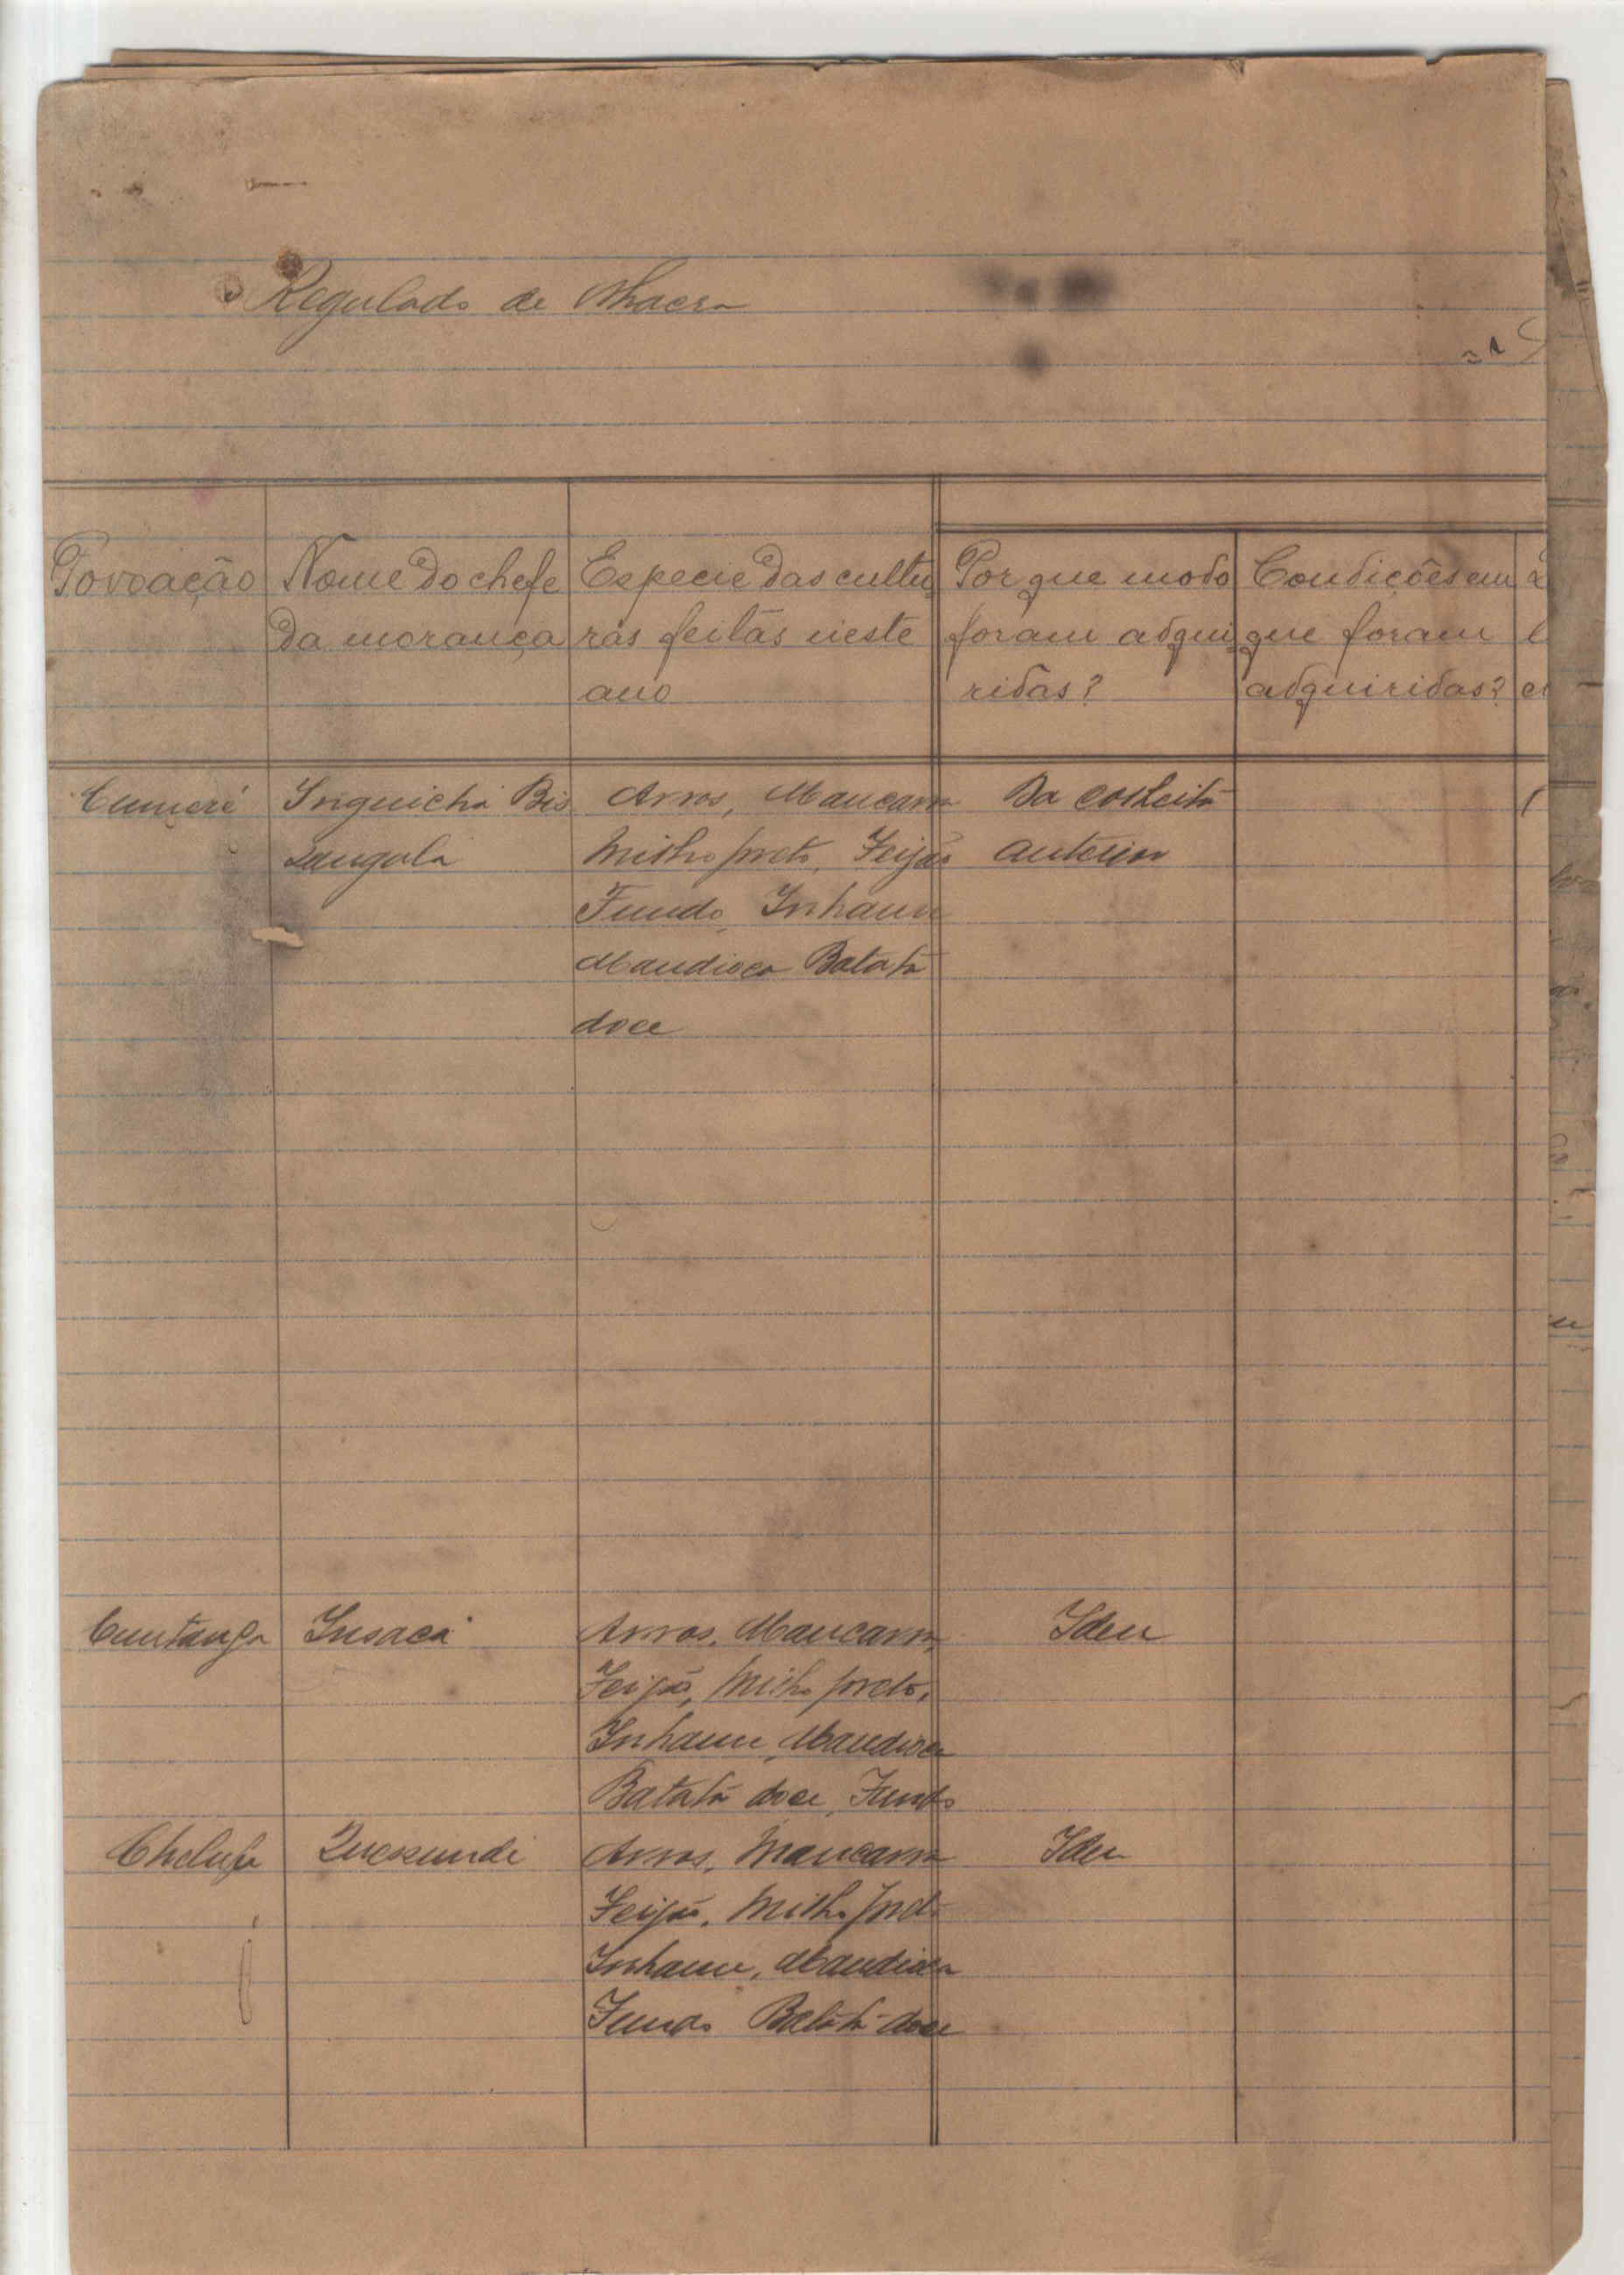 Regulado de Nhacra
Povoação
Nome do chefe
da morança
Especie das cultu
ras feitas neste
ano
Por que modo
foram adqui
ridas?
Condições em
que foram
adquiridas?
Cumeré
Inquichá Bis
Langula
Arros, Mancarra
Milho preto, Feijão
Fundo, Inhame
Mandioca Batata
doce
Da colheita
anterior
Cuntanga
Insacá
Arros, Mancarra,
Feijão, Milho preto,
Inhame, Mandioca
Batata doce, Fundo
Idem
Arros, Mancarra
Feijão, Milho preto
Inhame, Mandioca
Fundo Batata doce
Idem